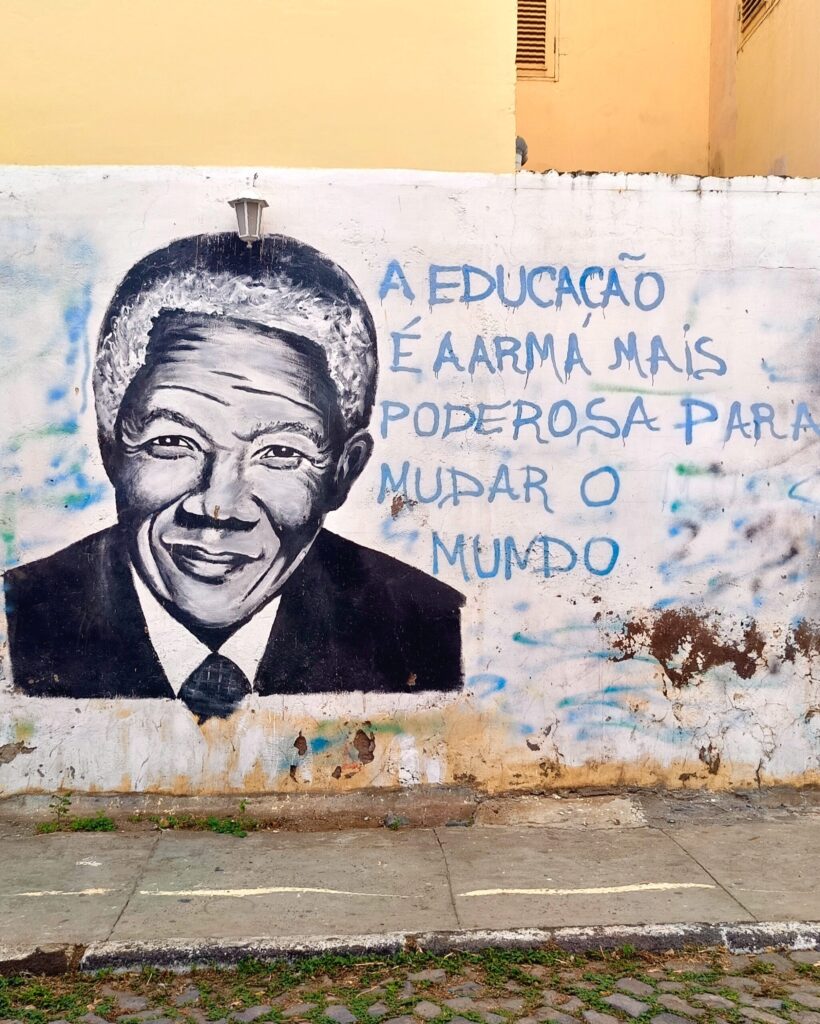 A EDUCAÇÃO
É A ARMÁ MAIS
PODEROSA PARA
MUDAR O
MUNDO